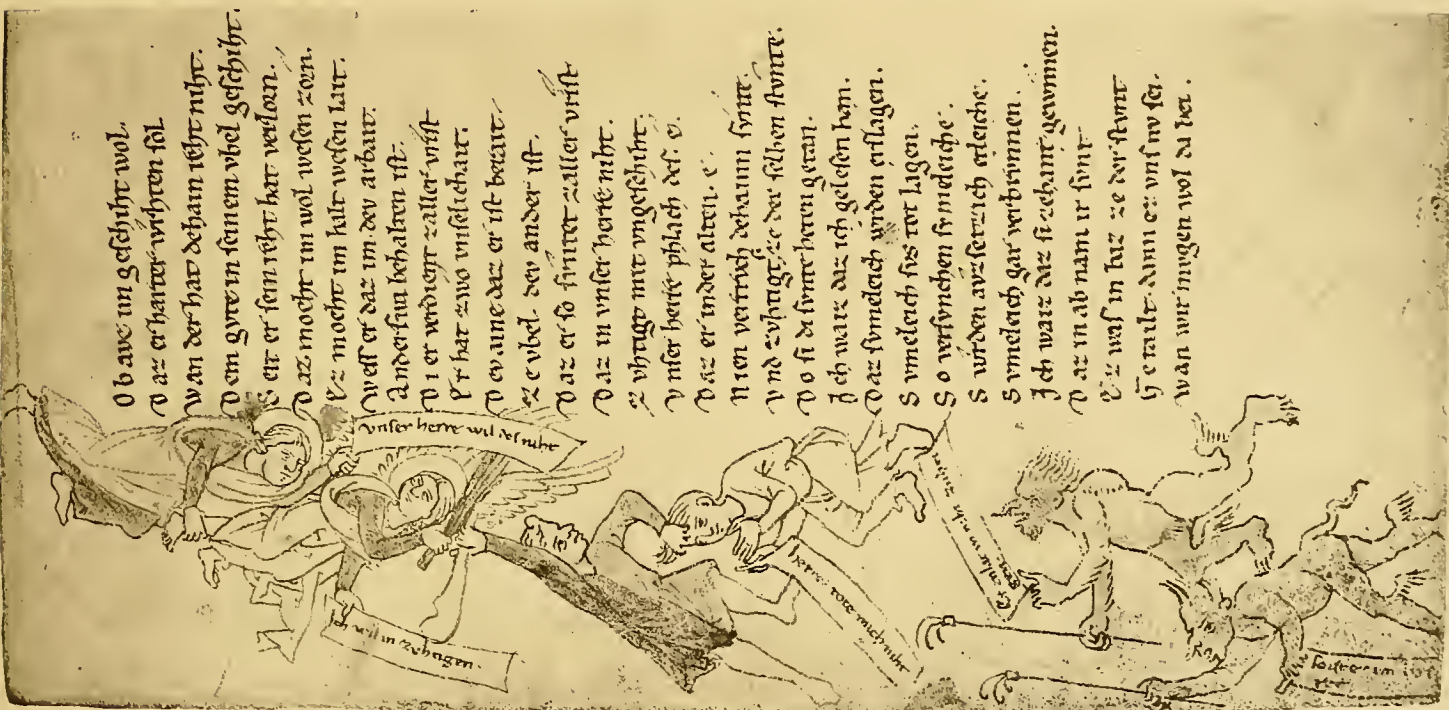 O b ave im geschiht wol.
D az er harter wrhten sol
W an der hat dehain reht niht.
D em gvte in seinem vbel geschiht
S eit er sein reht hat verlorn.
D az moeht im wol wesen zorn.
E z moeht im halt wesen lait.
W ess er daz im dev arbait.
A nderswa behalten ist.
D i er verdient zaller vrist
E r hat zwo vnselichait.
D ev aine daz er ist berait.
Z e vbel. dev ander ist.
D az er so sundet zaller vrist
D az in vnser herre niht.
Z vhtigt mit vngeschiht.
V nser herre phlach des. e.
D az er in der alten. e.
N ien vertrvch dehainn svnte.
V nd zvhtigt. ze der selben stvnte.
D o si di svnte heten getan.
I ch waiz daz ich gelesen han.
D az svmeleich wrden erslagen.
S vmeleich svs tot lagen.
S o versvnchen svmeleiche.
S i wurden avzsetzich erleiche.
S vmeleich gar verbrinnen.
I ch waiz daz si zehant gewnnen
D az in ab nam ir svnt
E z was in baz ze der stvnt
G etailt. dann ez vns nv sei.
W an wir mugen wol da bei.
vnser herre wil des niht
Ich wil in zvhtigen.
herre tote mich niht